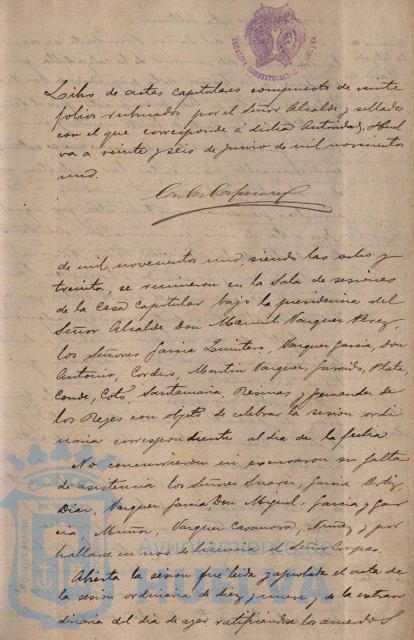 Libro de actas capitulares compuesto de veinte
folios rubricados por el Señor Alcalde y sellados
con el que corresponde á dicha Autoridad, Huel
va á veinte y séis de Junio de mil novecientos
uno.
de mil novecientos uno, siendo las ocho y
treinta, se reunieron en la Sala de sesiones
de la Casa Capitular bajo la presidencia del
Señor Alcalde Don Manuel Vazquez Perez,
los Señores Garcia Quintero, Vazquez Garcia, Don
Antonio, Cordero, Martin Vazquez, Garrido, Plata,
Conde, Coto, Santamaria, y Fernandez de
los Reyes con objeto de celebrar la sesion ordi
naria correspondiente al dia de la fecha.
No concurrieron ni excusaron su falta
de asistencia los Señores Suarez, Garcia Ortiz,
Diaz, Vazquez Garcia Don Miguel, Garcia y Gar
cia, Muñoz, Vazquez Casanova, Nuñez y por
hallarse en uso de licencia el Señor Corpas.
Abierta la sesion fué leida y aprobada el acta de
la sesion ordinaria de diez y nueve y de la extraor
dinaria del dia de ayer ratificandose los acuerdos
Ayuntamiento de
HUELVA